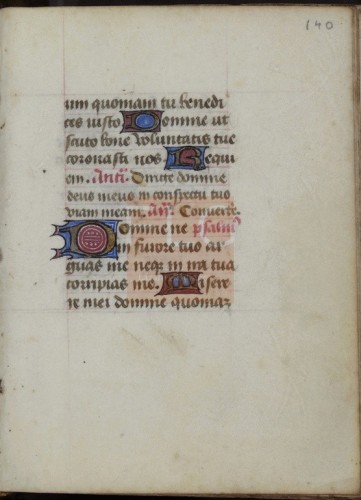 140
um quoniam tu benedi
ces iusto Domine ut
scuto bone voluntatis tue
coronasti nos. Requi
em. Antі. Dirite domine
deus meus in conspectu tuo
viam meam. An. Converte.
Domine ne psalm
in furore tuo ar
guas me neque in ira tua
corripias me. Misere
re mei domine quoniam